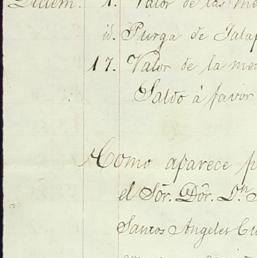 Diciem. 1. Valor de las me
id. Purga de Jalap
17. Valor de la me
Saldo á favor
Como aparece p
el Sor. Dor. Dn.
Santos Angeles Cu